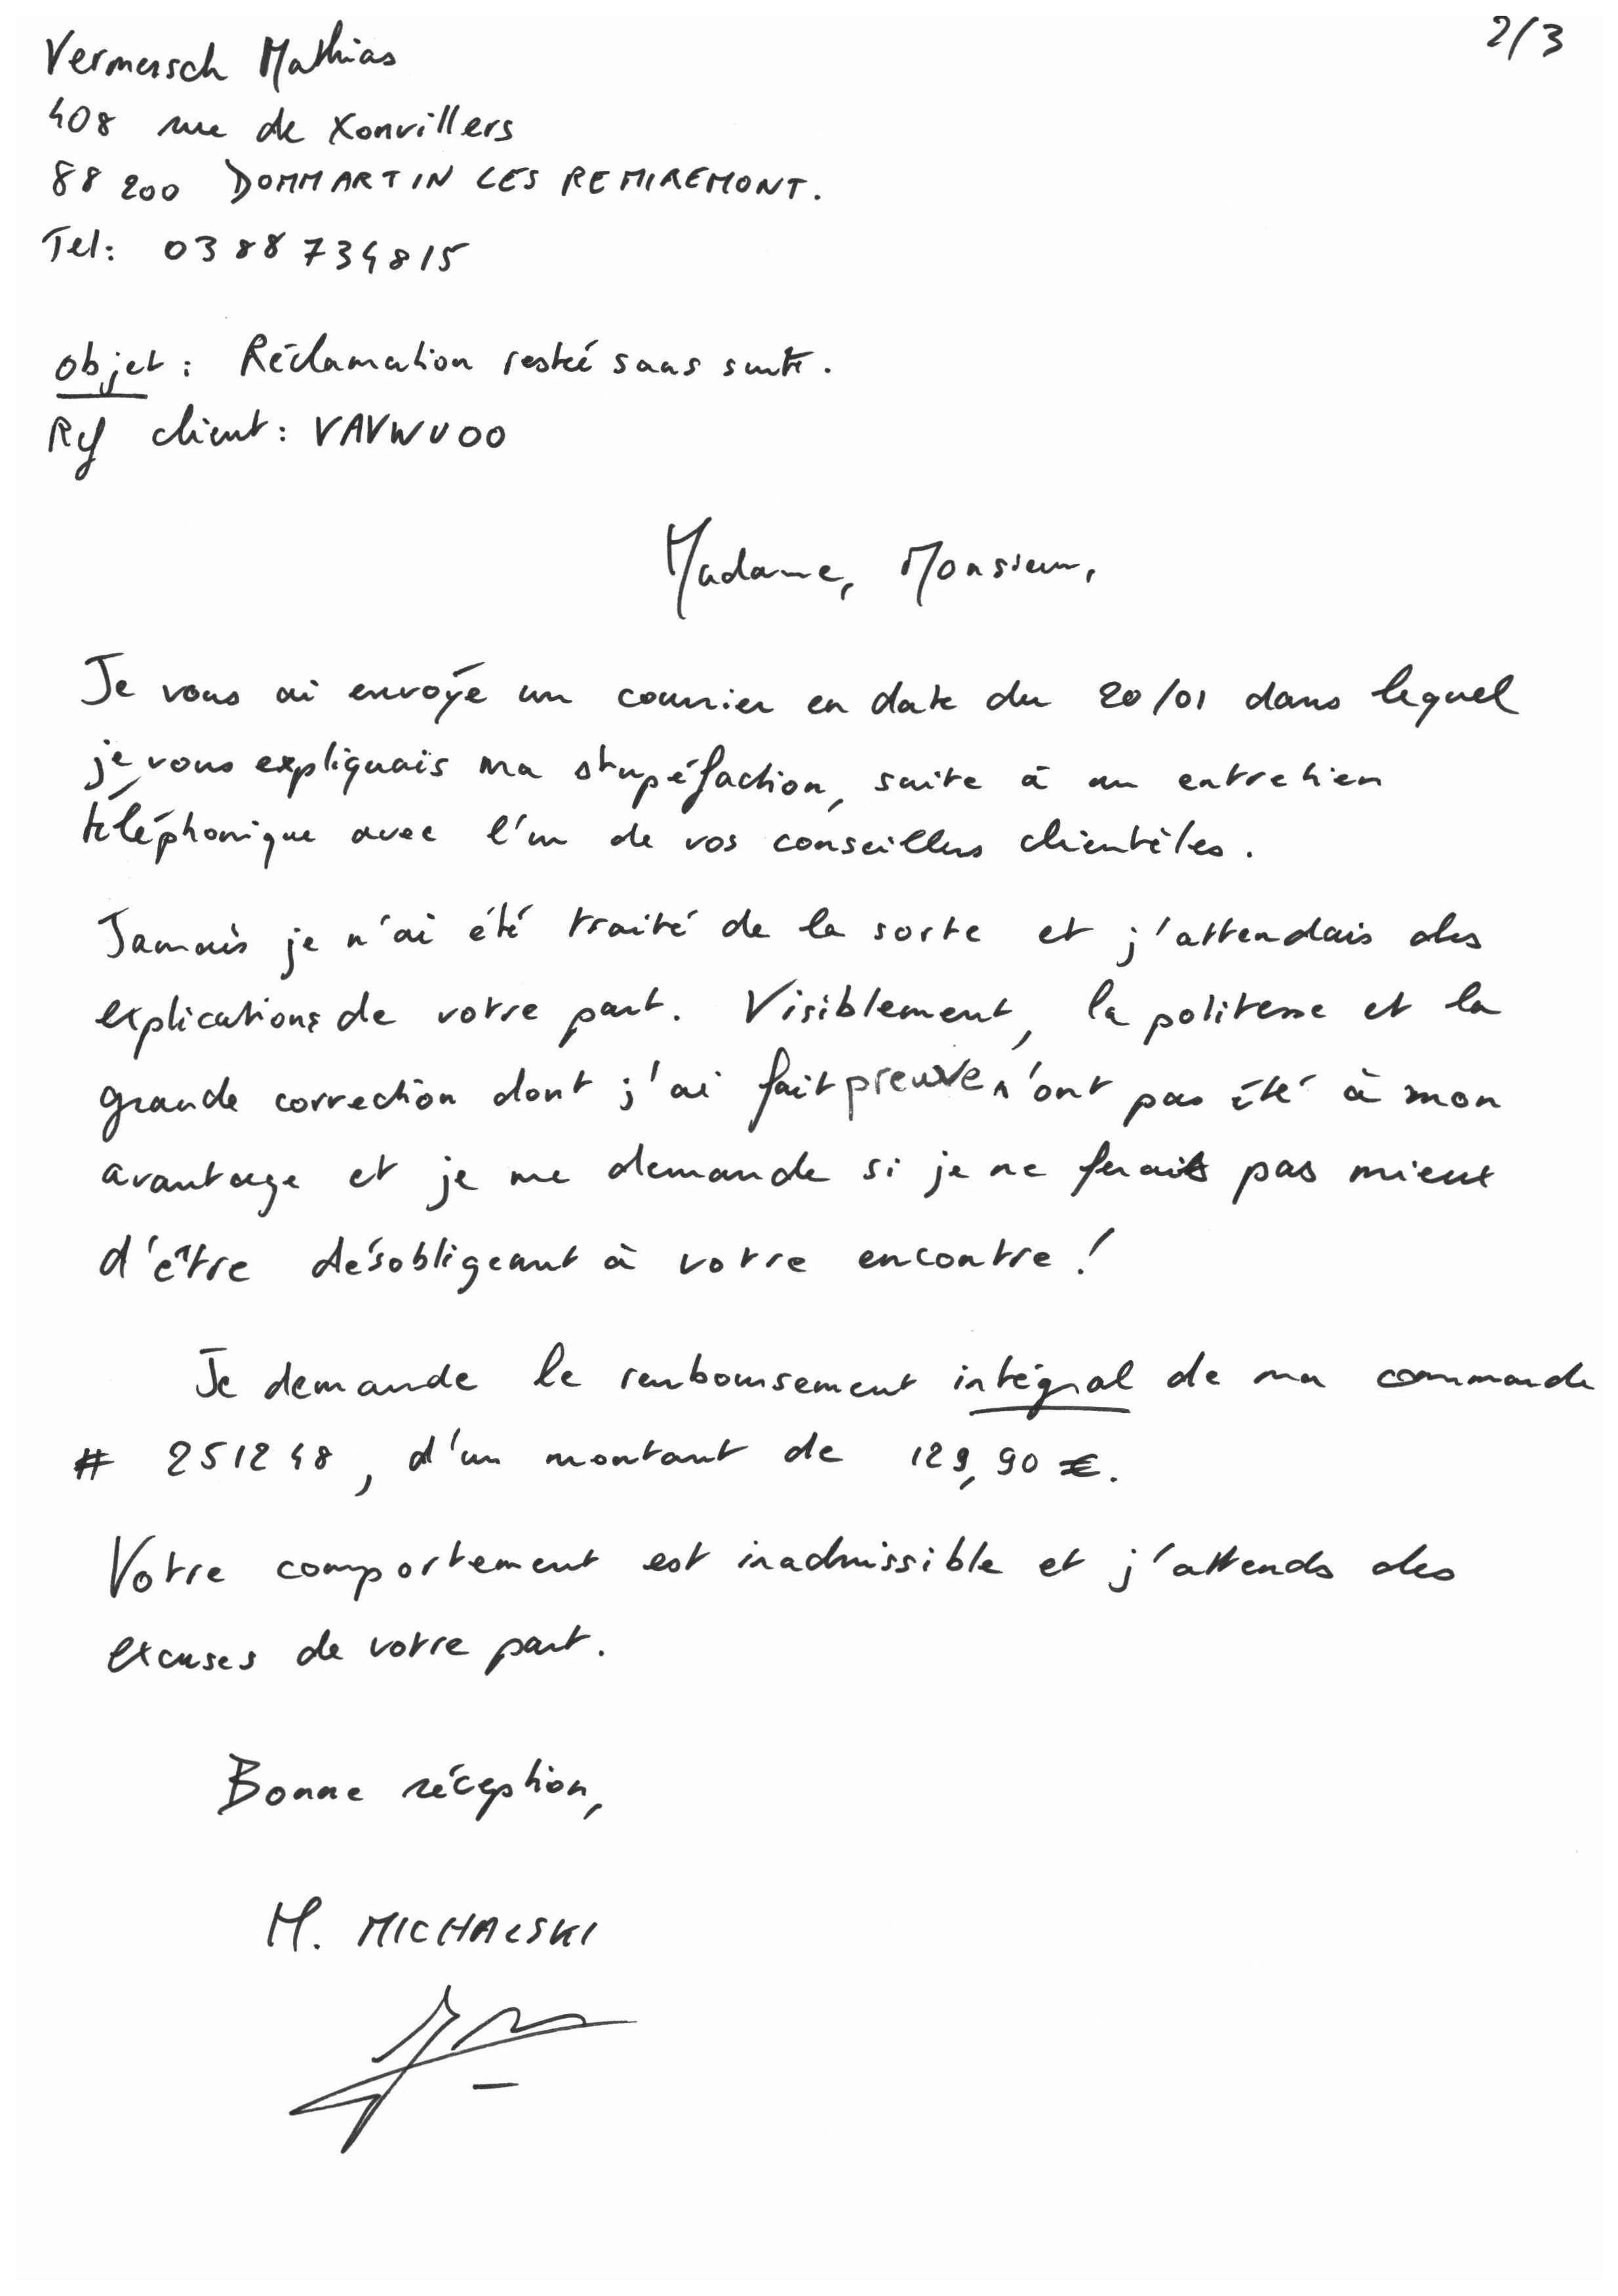 2/3
Vermersch Mathias
408 rue de Xonvillers
88200 DOMMARTIN LES REMIREMONT.
Tel: 0388734815
objet : Réclamation restée sans suite.
Ref client : VAVWU00
Madame, Monsieur,
Je vous ai envoyé un courrier en date du 20/01 dans lequel
je vous expliquais ma stupéfaction, suite à un entretien
téléphonique avec l'un de vos conseillers clientèles.
Jamais je n'ai été traité de la sorte et j'attendais des
explications de votre part. Visiblement, la politesse et la
grande correction dont j'ai fait preuve n'ont pas été à mon
avantage et je me demande si je ne ferais pas mieux
d'être désobligeant à votre encontre !
Je demande le remboursement intégral de ma commande
# 251248, d'un montant de 129,90 €.
Votre comportement est inadmissible et j'attends des
excuses de votre part.
Bonne réception,
M. MICHALSKI